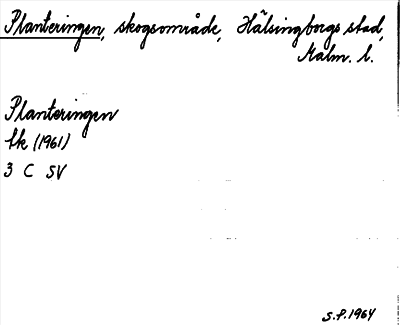 Planteringen, skogsområde, Hälsingborgs stad,
Malm. l.
Planteringen
Ek (1961)
3 C SV
S.P. 1964